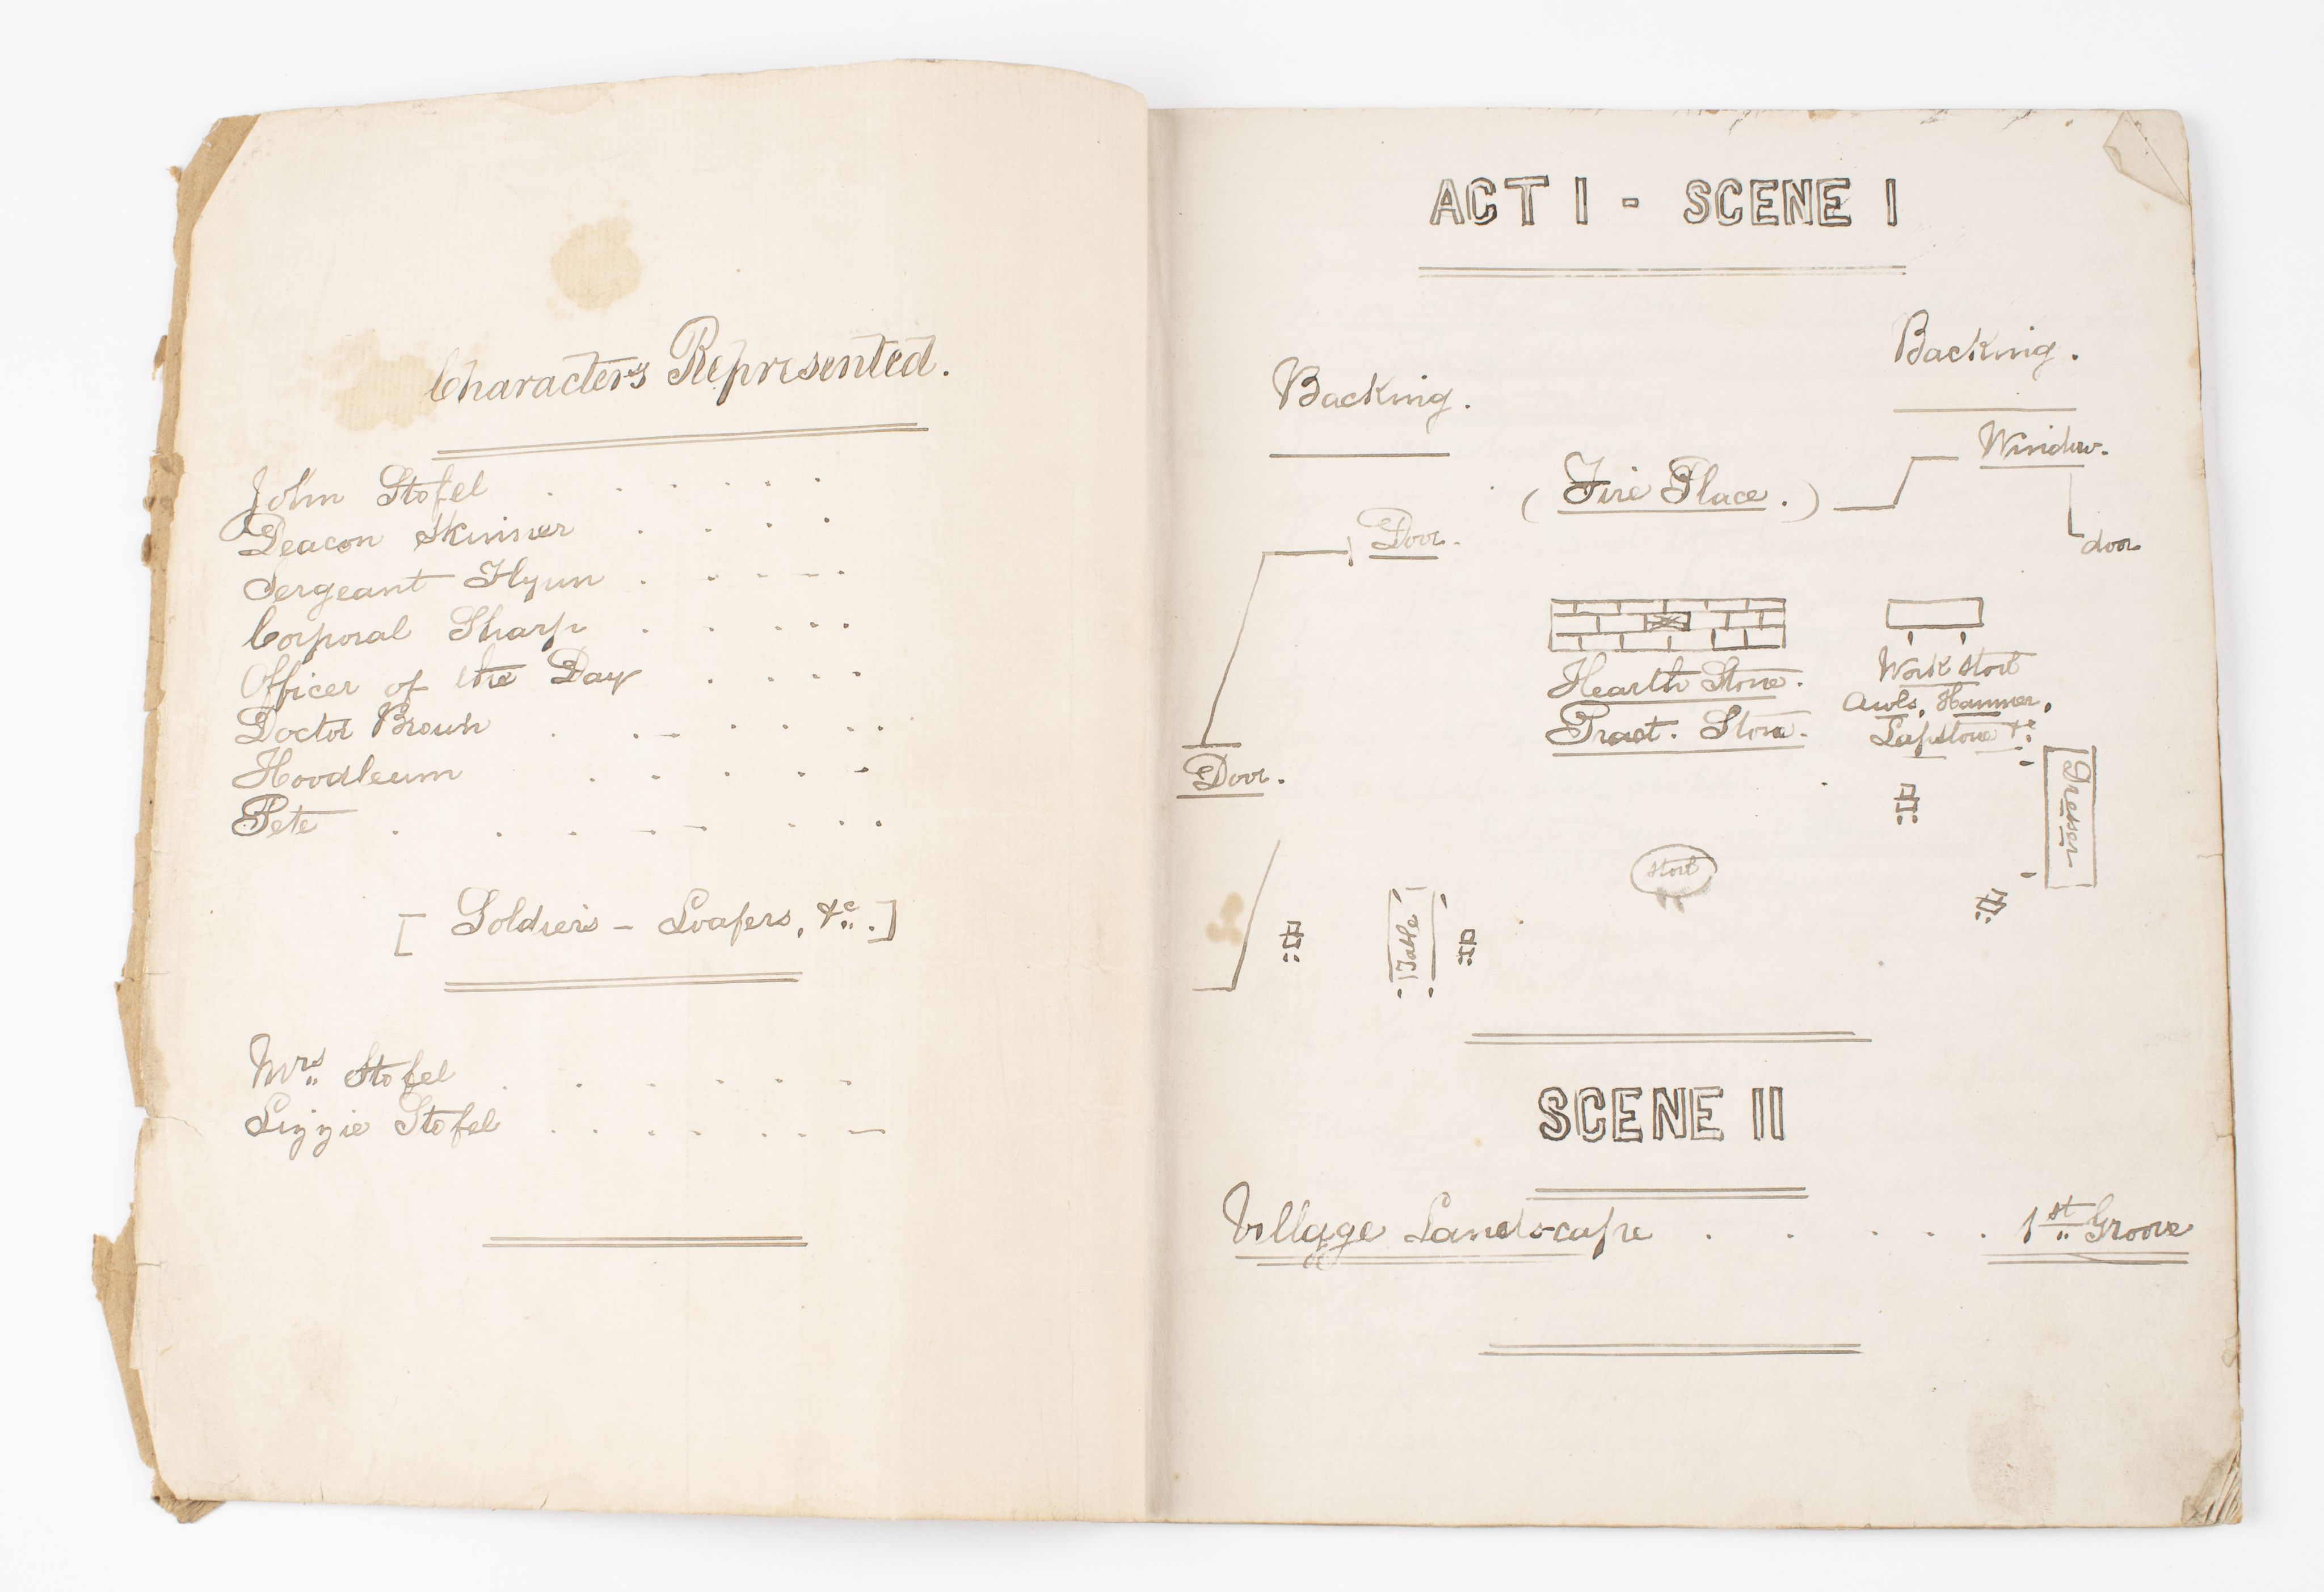 Characters Represented.
John Stofel . . . . . .
Deacon Skinner . . . .
Sergeant Flynn . . . - .
Corporal Sharp . . . . .
Officer of the Day . . . .
Doctor Brown . . . . . . .
Hoodleum . . . . -
Pete . . . . . . . .
[ Soldiers - Loafers, &c. ]
Mrs Stofel . . . . . .
Lizzie Stofel . . . . . . -
ACT I - SCENE I
Backing.
Backing.
Window.
(Fire Place.)
Door.
door
Hearth Stone.
Work stool
Awls, Hammer,
Pract. Stone.
Lapstone &c
Door.
Dresser
stool
Table
SCENE II
Village Landscape . . . . . 1st Groove